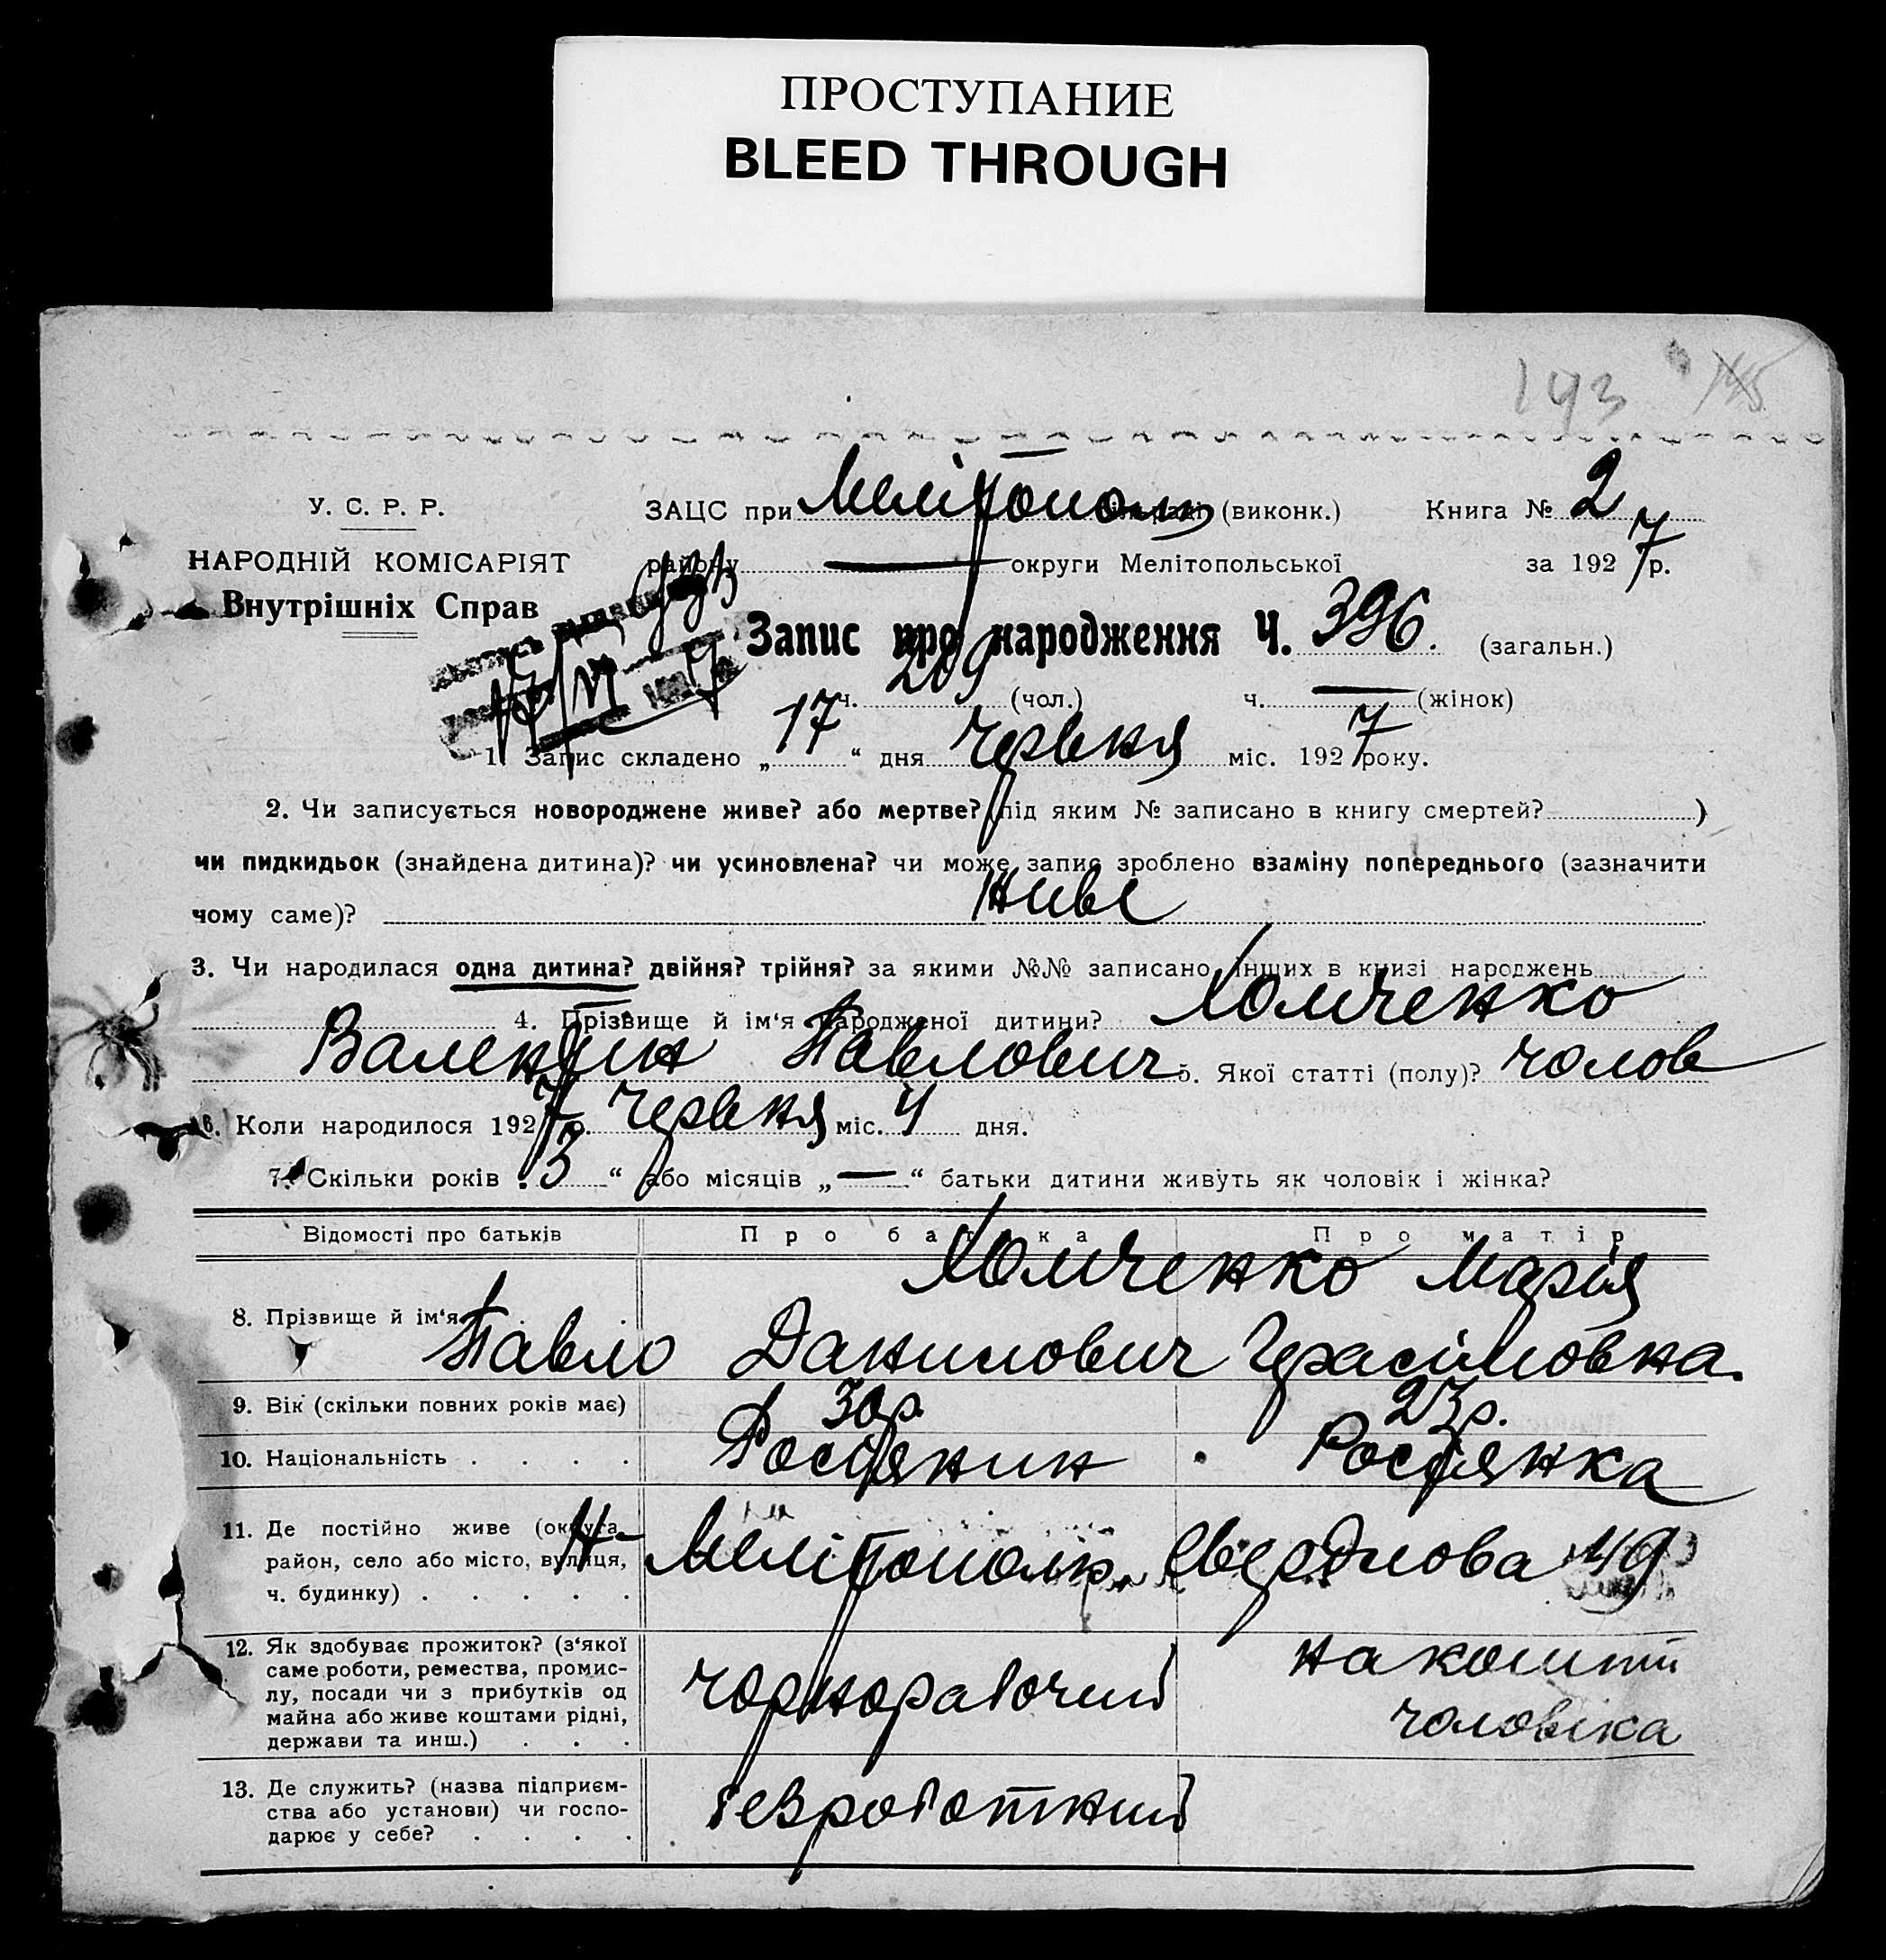 ПРОСТУПАНИЕ
BLEED THROUGH
193
У. С. Р. Р.
ЗАЦС при Мелітополь (виконк.) Книга № 2
НАРОДНІЙ КОМІСАРІЯТ
району — округи Мелітопольської за 1927 р.
Внутрішніх Справ
Запис про народження Ч. 396. (загальн.)
ч. 209 (чол.) ч. — (жінок)
1. Запис складено „17“ дня червня міс. 1927 року.
2. Чи записується новороджене живе? або мертве? (під яким № записано в книгу смертей? )
чи пидкидьок (знайдена дитина)? чи усиновлена? чи може запис зроблено взаміну попереднього (зазначити
чому саме)? живе
3. Чи народилася одна дитина? двійня? трійня? за якими №№ записано інших в книзі народжень
4. Прізвище й ім‘я народженої дитини? Хомченко
Валентин Павлович 5. Якої статті (полу)? чолов
6. Коли народилося 1927 р. червня міс. 4 дня.
7. Скільки років „3“ або місяців „—“ батьки дитини живуть як чоловік і жінка?
Відомості про батьків Про батька Про матір
Хомченко Марія
8. Прізвище й ім‘я . . .
Павло Данилович Герасімовна.
9. Вік (скільки повних років має) 30 р. 23 р.
10. Національність . . . . Росіянин Росіянка
11. Де постійно живе (округа,
район, село або місто, вулиця,
ч. будинку) . . . . .
Мелітополь, Свердлова 49
12. Як здобуває прожиток? (з‘якої
саме роботи, ремества, промис-
лу, посади чи з прибутків од
майна або живе коштами рідні,
держави та инш.) . . .
чорноработчий на кошти
чоловіка
13. Де служить? (назва підприєм-
ства або установи) чи госпо-
дарює у себе? . . . .
безработний